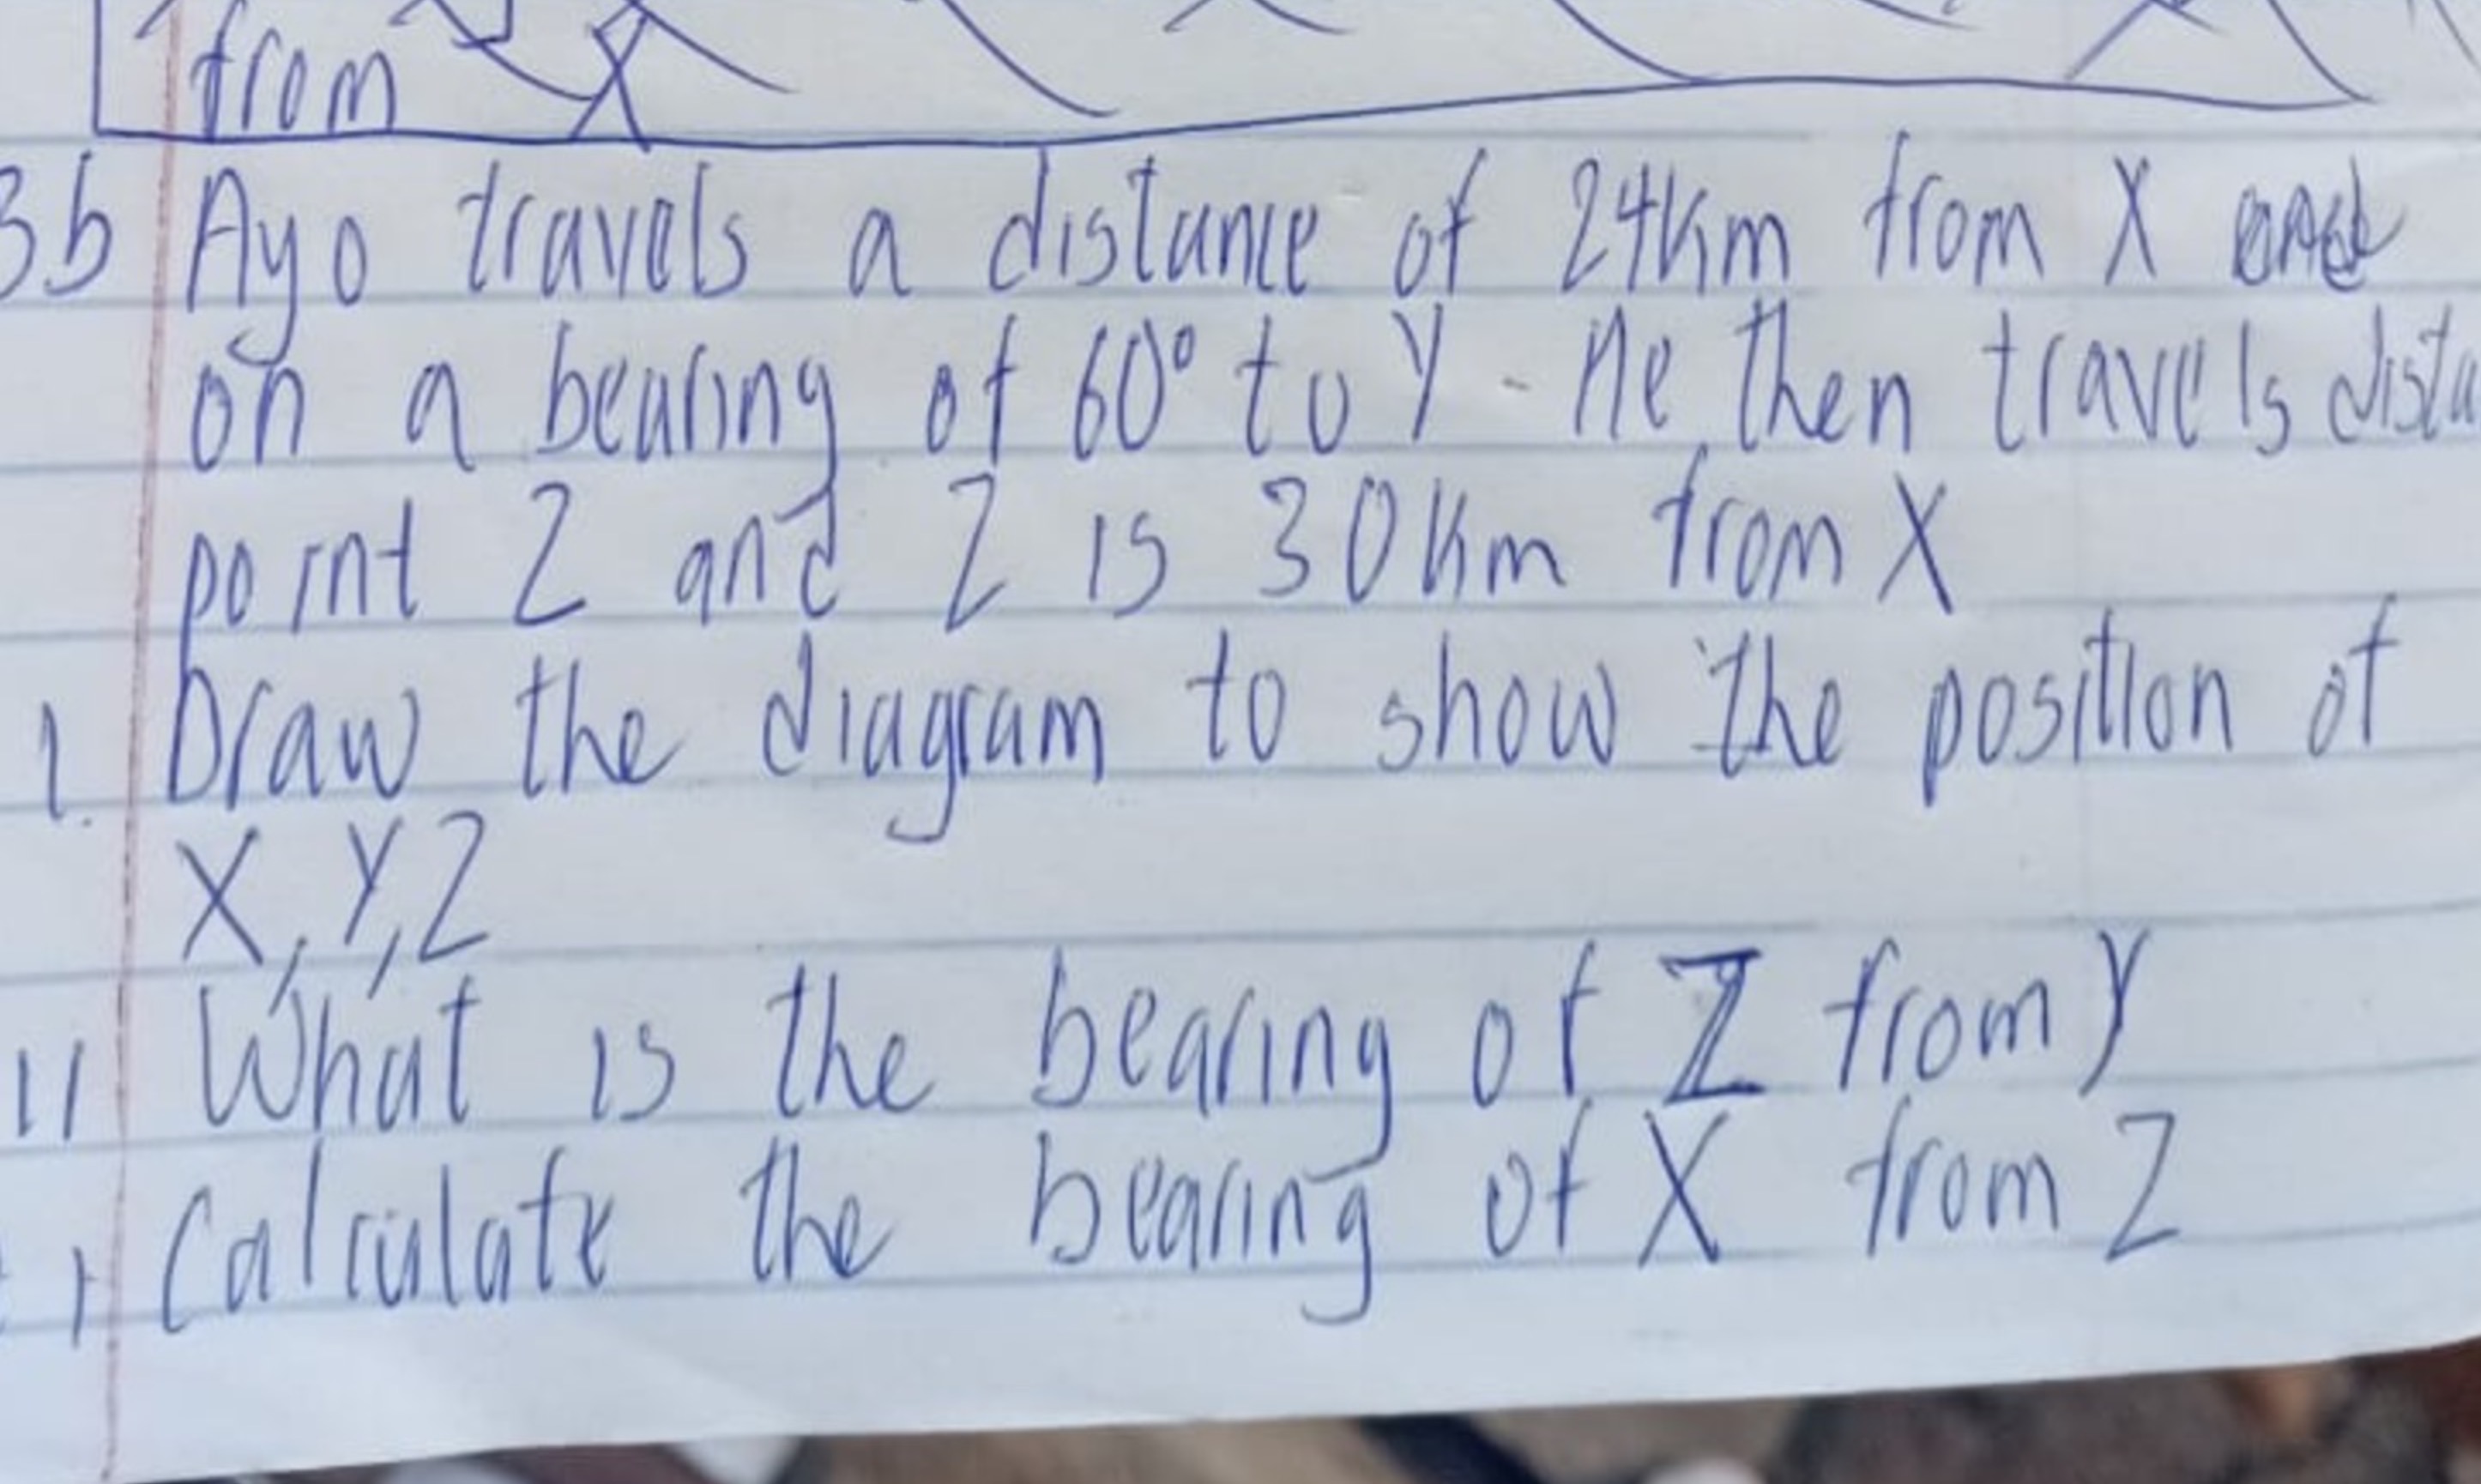 from
3b Ayo travels a distance of 24km from X
on a bearing of 60° to Y - He then travels dista
point Z and Z is 30km from X
1. Draw the diagram to show the position of
X, Y, Z
11 What is the bearing of Z from Y
1 Calculate the bearing of X from Z